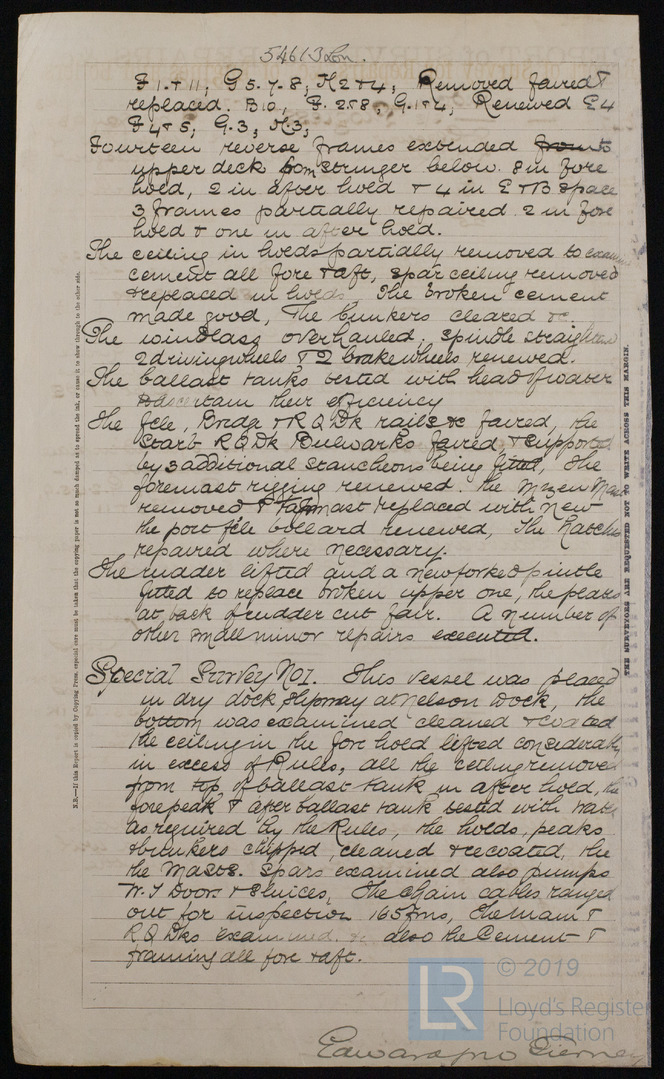 54613 Lon.
F 1 & 11, G 5. 7. 8, H 2 & 4, Removed faired &
replaced. B 10, F. 2 & 8, G. 1 & 4, Renewed E 4
F 4 & 5, G. 3, H. 3,
Fourteen reverse frames extended to
upper deck from stringer below. 8 in fore
hold, 2 in after hold & 4 in E & B space
3 frames partially repaired. 2 in fore
hold & one in after hold.
The ceiling in holds partially removed to
cement all fore & aft, spar ceiling removed
& replaced in holds The broken cement
made good, The bunkers cleared &c.
The windlass overhauled, spindle straightened
2 driving wheels & 2 brake wheels renewed.
The ballast tanks tested with head of water
to ascertain their efficiency
The fcle, Bridge & R Q Dk rails &c faired, the
Starb R Q Dk Bulwarks faired, & supported
by 3 additional stancheons being fitted, The
foremast rigging renewed. the Mizen Mast
removed & mast replaced with new
the port fcle bollard renewed, The hatches
repaired where necessary.
The rudder lifted and a new forked pintle
fitted to replace broken upper one, the
at back of rudder cut fair. A number of
other small minor repairs executed.
Special Survey No 1. This vessel was placed
in dry dock, slipway at Nelson Dock, the
bottom was examined cleaned & coated
the ceiling in the fore hold lifted considerably
in excess of Rules, all the ceiling removed
from top of ballast tank in after hold, the
forepeak & after ballast tank tested with water
as required by the Rules, the holds, peaks
& bunkers chipped, cleaned & recoated, the
the Masts. Spars examined also pumps
W. T Doors & Sluices, The chain cables ranged
out for inspection 165 fms, The Main &
R Q Dks examined &c also the Cement &
framing all fore & aft.
Edward Jno Tierney
N.B.—If this Report is copied by Copying Press, especial care must be taken that the copying paper is not so much damped as to spread the ink, or cause it to show through to the other side.
THE SURVEYORS ARE REQUESTED NOT TO WRITE ACROSS THIS MARGIN.
LR
© 2019
Lloyd's Register
Foundation